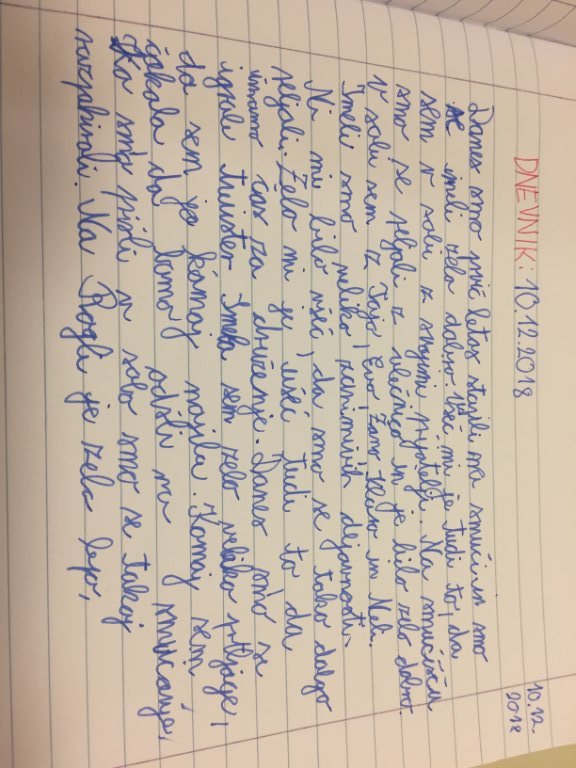 10.12.
2018
DNEVNIK: 10.12.2018
Danes smo prvič letos stopili na smuči in smo
se imeli zelo dobro. Všeč mi je tudi to, da
sem v sobi z svojimi prijatelji. Na smučišču
smo se peljali z vlečnico in je bilo zelo dobro.
V sobi sem z Tajo, Evo, Žano Klaro in Neli.
Imeli smo veliko zanimivih dejavnosti.
Ni mi bilo všč, da smo se tako dolgo
peljali. Zelo mi je všeč tudi to da
imamo čas za druženje. Danes smo se
igrali twister. Imela sem zelo veliko prtljage,
da sem jo komaj nosila. Komaj sem
čakala da bomo odšli na smučanje.
Ko smo prišli v sobo smo se takoj
razpakirali. Na Rogli je zelo lepo,